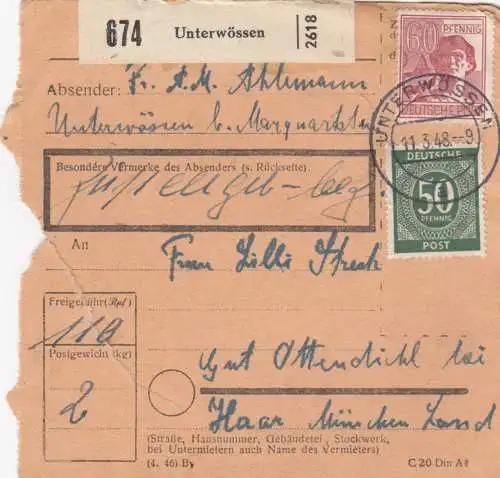 674 Unterwössen 2618
60 PFENNIG
DEUTSCHE POST
UNTERWÖSSEN
11.3.48.--9
DEUTSCHE
50
PFENNIG
POST
Absender: Fr. A.M. Ahlemann
Unterwössen b. Marquartstein
Besondere Vermerke des Absenders (s. Rückseite).
Zustellgeb. bez
An Frau Lilli Streck
Freigebühr (Rpf)
110
Postgewicht (kg)
2
Gut Ottendichl bei
Haar München Land
(Straße, Hausnummer, Gebäudeteil, Stockwerk,
bei Untermietern auch Name des Vermieters)
(4. 46) By
C 20 Din A6